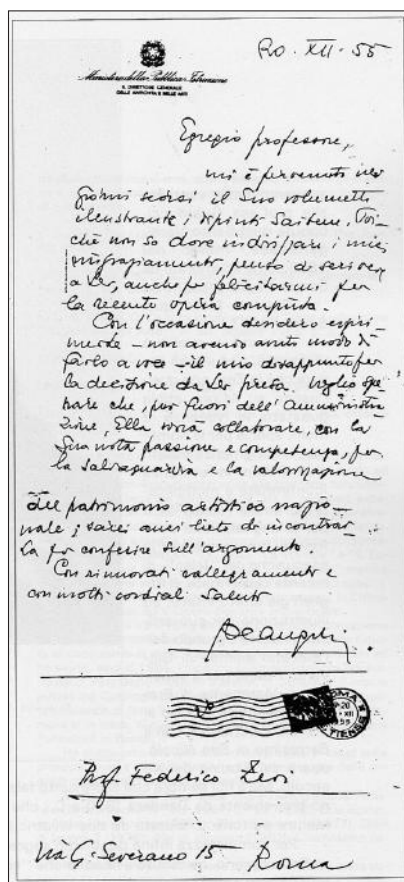 Ro. XII. 55
Ministero della Pubblica Istruzione
IL DIRETTORE GENERALE
DELLE ANTICHITÀ E BELLE ARTI
Egregio professore,
mi è pervenuto nei
giorni scorsi il Suo volumetto
illustrante i dipinti Saibene. Poi-
chè non so dove indirizzare i miei
ringraziamenti, penso di scrivere
a Lei, anche per felicitarmi per
la recente opera compiuta.
Con l'occasione desidero espri-
merle - non avendo avuto modo di
farlo a voce - il mio disappunto per
la decisione da Lei presa. Voglio spe-
rare che, pur fuori dell'Amministra-
zione, Ella vorrà collaborare, con la
Sua nota passione e competenza, per
la salvaguardia e la valorizzazione
del patrimonio artistico nazio-
nale; sarei anzi lieto di incontrar-
La per conferire sull'argomento.
Con rinnovati rallegramenti e
con molti cordiali saluti
De Angelis
ROMA
OSTIENSE
Prof. Federico Zeri
Via G. Severano 15 Roma